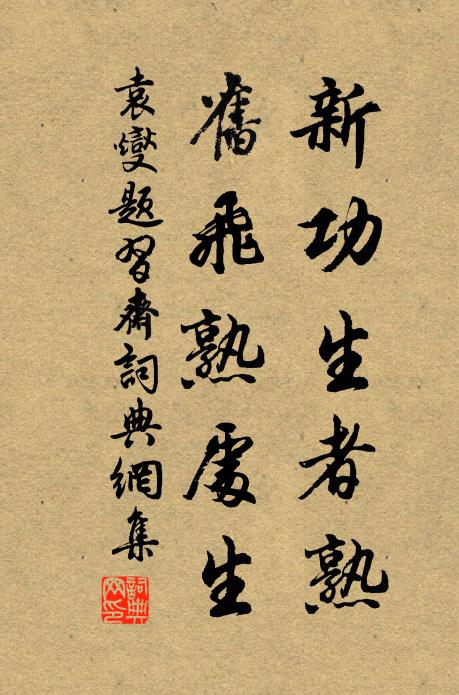 新功生者熟
舊飛熟處生
袁燮題習齋詞典網集
詞典网印